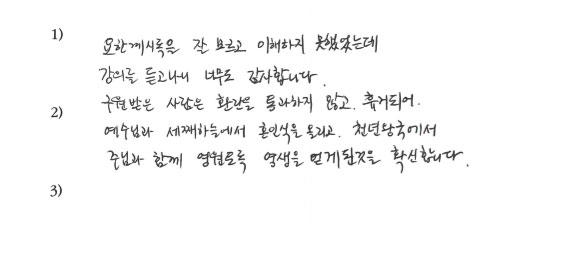 1)
요한계시록을 잘 모르고 이해하지 못했었는데
강의를 듣고나니 너무도 감사합니다.
2) 구원받은 사람은 환란을 통과하지 않고. 휴거되어.
예수님과 세째하늘에서 혼인식을 올리고. 천년왕국에서
주님과 함께 영원토록 영생을 얻게된것을 확신합니다.
3)